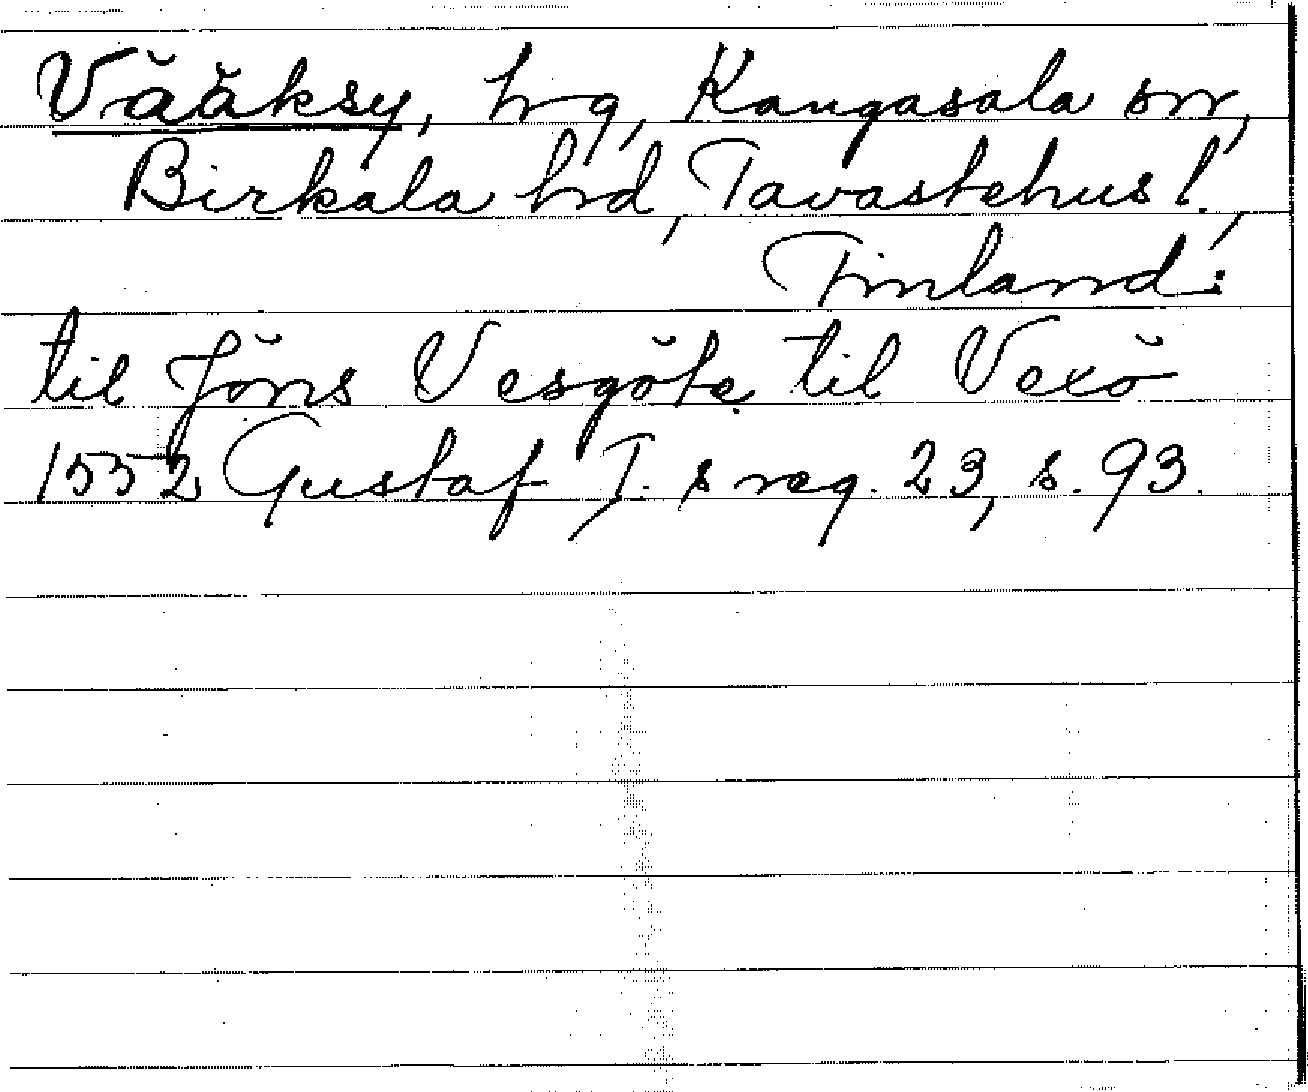 Vääksy, hrg, Kangasala sn,
Birkala hd, Tavastehus l.,
Finland:
til Jöns Vesgöte til Vexö
1552 Gustaf I.s reg. 23, s. 93.